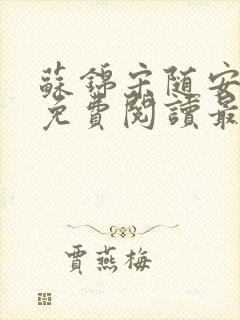 蘇錦宋随安
免費閱讀最
賈燕梅